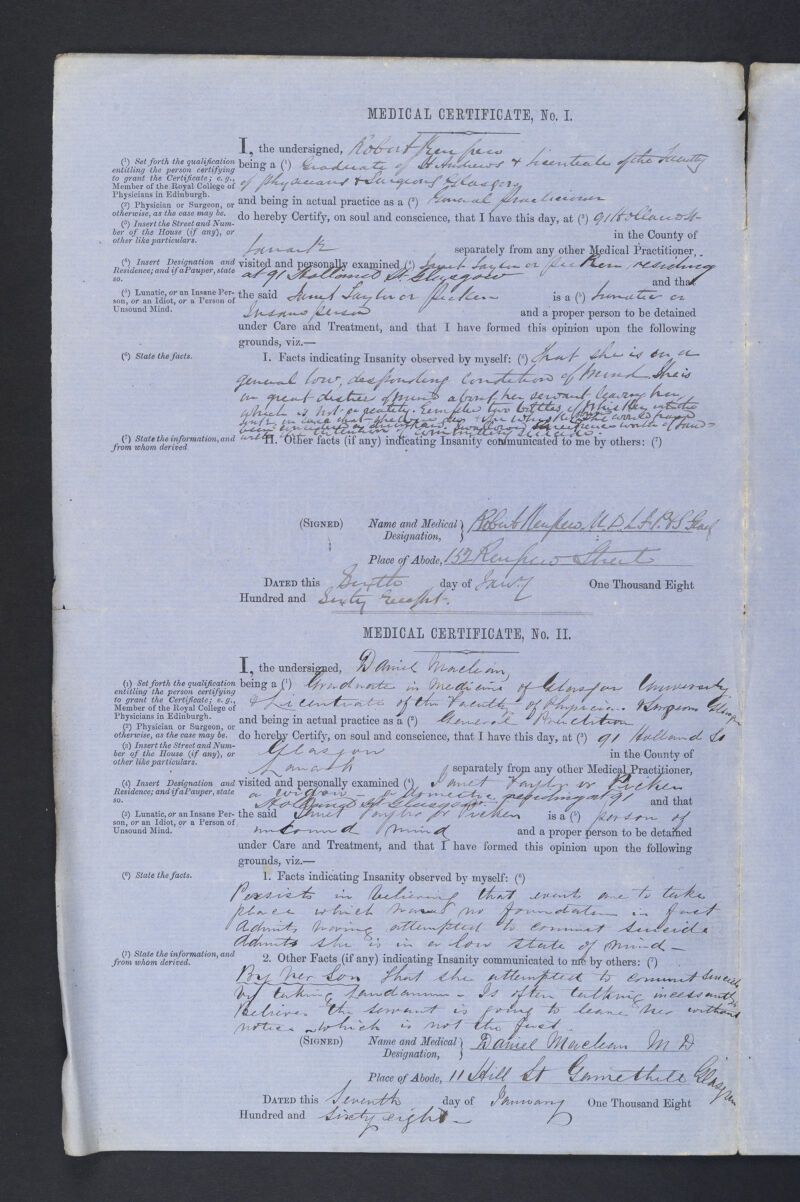 MEDICAL CERTIFICATE, No. I.
I, the undersigned, Robert Renfrew
(¹) Set forth the qualification entitling the person certifying to grant the Certificate; e. g., Member of the Royal College of Physicians in Edinburgh.
being a (¹) Graduate of St Andrews & Licentiate of the Faculty
of Physicians & Surgeons Glasgow
(²) Physician or Surgeon, or otherwise, as the case may be.
and being in actual practice as a (²) General practitioner
(³) Insert the Street and Number of the House (if any), or other like particulars.
do hereby Certify, on soul and conscience, that I have this day, at (³) 91 Holland St
in the County of
Lanark separately from any other Medical Practitioner,
(⁴) Insert Designation and Residence; and if a Pauper, state so.
visited and personally examined (⁴) Janet Taylor or Picken, residing
at 91 Holland St Glasgow and that
(⁵) Lunatic, or an Insane Person, or an Idiot, or a Person of Unsound Mind.
the said Janet Taylor or Picken is a (⁵) lunatic or
Insane person and a proper person to be detained
under Care and Treatment, and that I have formed this opinion upon the following
grounds, viz.—
(⁶) State the facts.
1. Facts indicating Insanity observed by myself: (⁶) That she is in a
general low, desponding condition of mind. She is
in great distress of mind about her servant leaving her
which is not
two bottles of Whiskey
(⁷) State the information, and from whom derived
with intention of committing suicide.
II. Other facts (if any) indicating Insanity communicated to me by others: (⁷)
(SIGNED) Name and Medical Designation, Robert Renfrew, M.D. L.F.P.&S. Glasg
Place of Abode, 152 Renfrew Street
DATED this Sixth day of Jany One Thousand Eight
Hundred and Sixty Eeight.
MEDICAL CERTIFICATE, No. II.
I, the undersigned, Daniel Maclean,
(1) Set forth the qualification entitling the person certifying to grant the Certificate; e. g., Member of the Royal College of Physicians in Edinburgh.
being a (¹) Graduate in Medicine of Glasgow University
& Licentiate of the Faculty of Physicians & Surgeons Glasgow
(2) Physician or Surgeon, or otherwise, as the case may be.
and being in actual practice as a (²) General Practition
(3) Insert the Street and Number of the House (if any), or other like particulars.
do hereby Certify, on soul and conscience, that I have this day, at (³) 91 Holland St
Glasgow in the County of
Lanark separately from any other Medical Practitioner,
(4) Insert Designation and Residence; and if a Pauper, state so.
visited and personally examined (⁴) Janet Taylor or Picken
a widow – a domestic residing at 91
Holland St Glasgow and that
(5) Lunatic, or an Insane Person, or an Idiot, or a Person of Unsound Mind.
the said Janet Taylor or Picken is a (⁵) person of
unsound mind and a proper person to be detained
under Care and Treatment, and that I have formed this opinion upon the following
grounds, viz.—
(⁶) State the facts.
1. Facts indicating Insanity observed by myself: (⁶)
Persists in believing that events are to take
place which have no foundation in fact
Admits having attempted to commit suicide
Admits she is in a low state of mind –
(7) State the information, and from whom derived.
2. Other Facts (if any) indicating Insanity communicated to me by others: (⁷)
By her Son That she attempted to commit suicide
by taking laudanum – Is often talking incessantly
Believes the servant is going to leave her without
notice which is not the fact
(SIGNED) Name and Medical Designation, Daniel Maclean M D
Place of Abode, 11 Hill St Garnethill Glasgow
DATED this Seventh day of January One Thousand Eight
Hundred and Sixty eight –